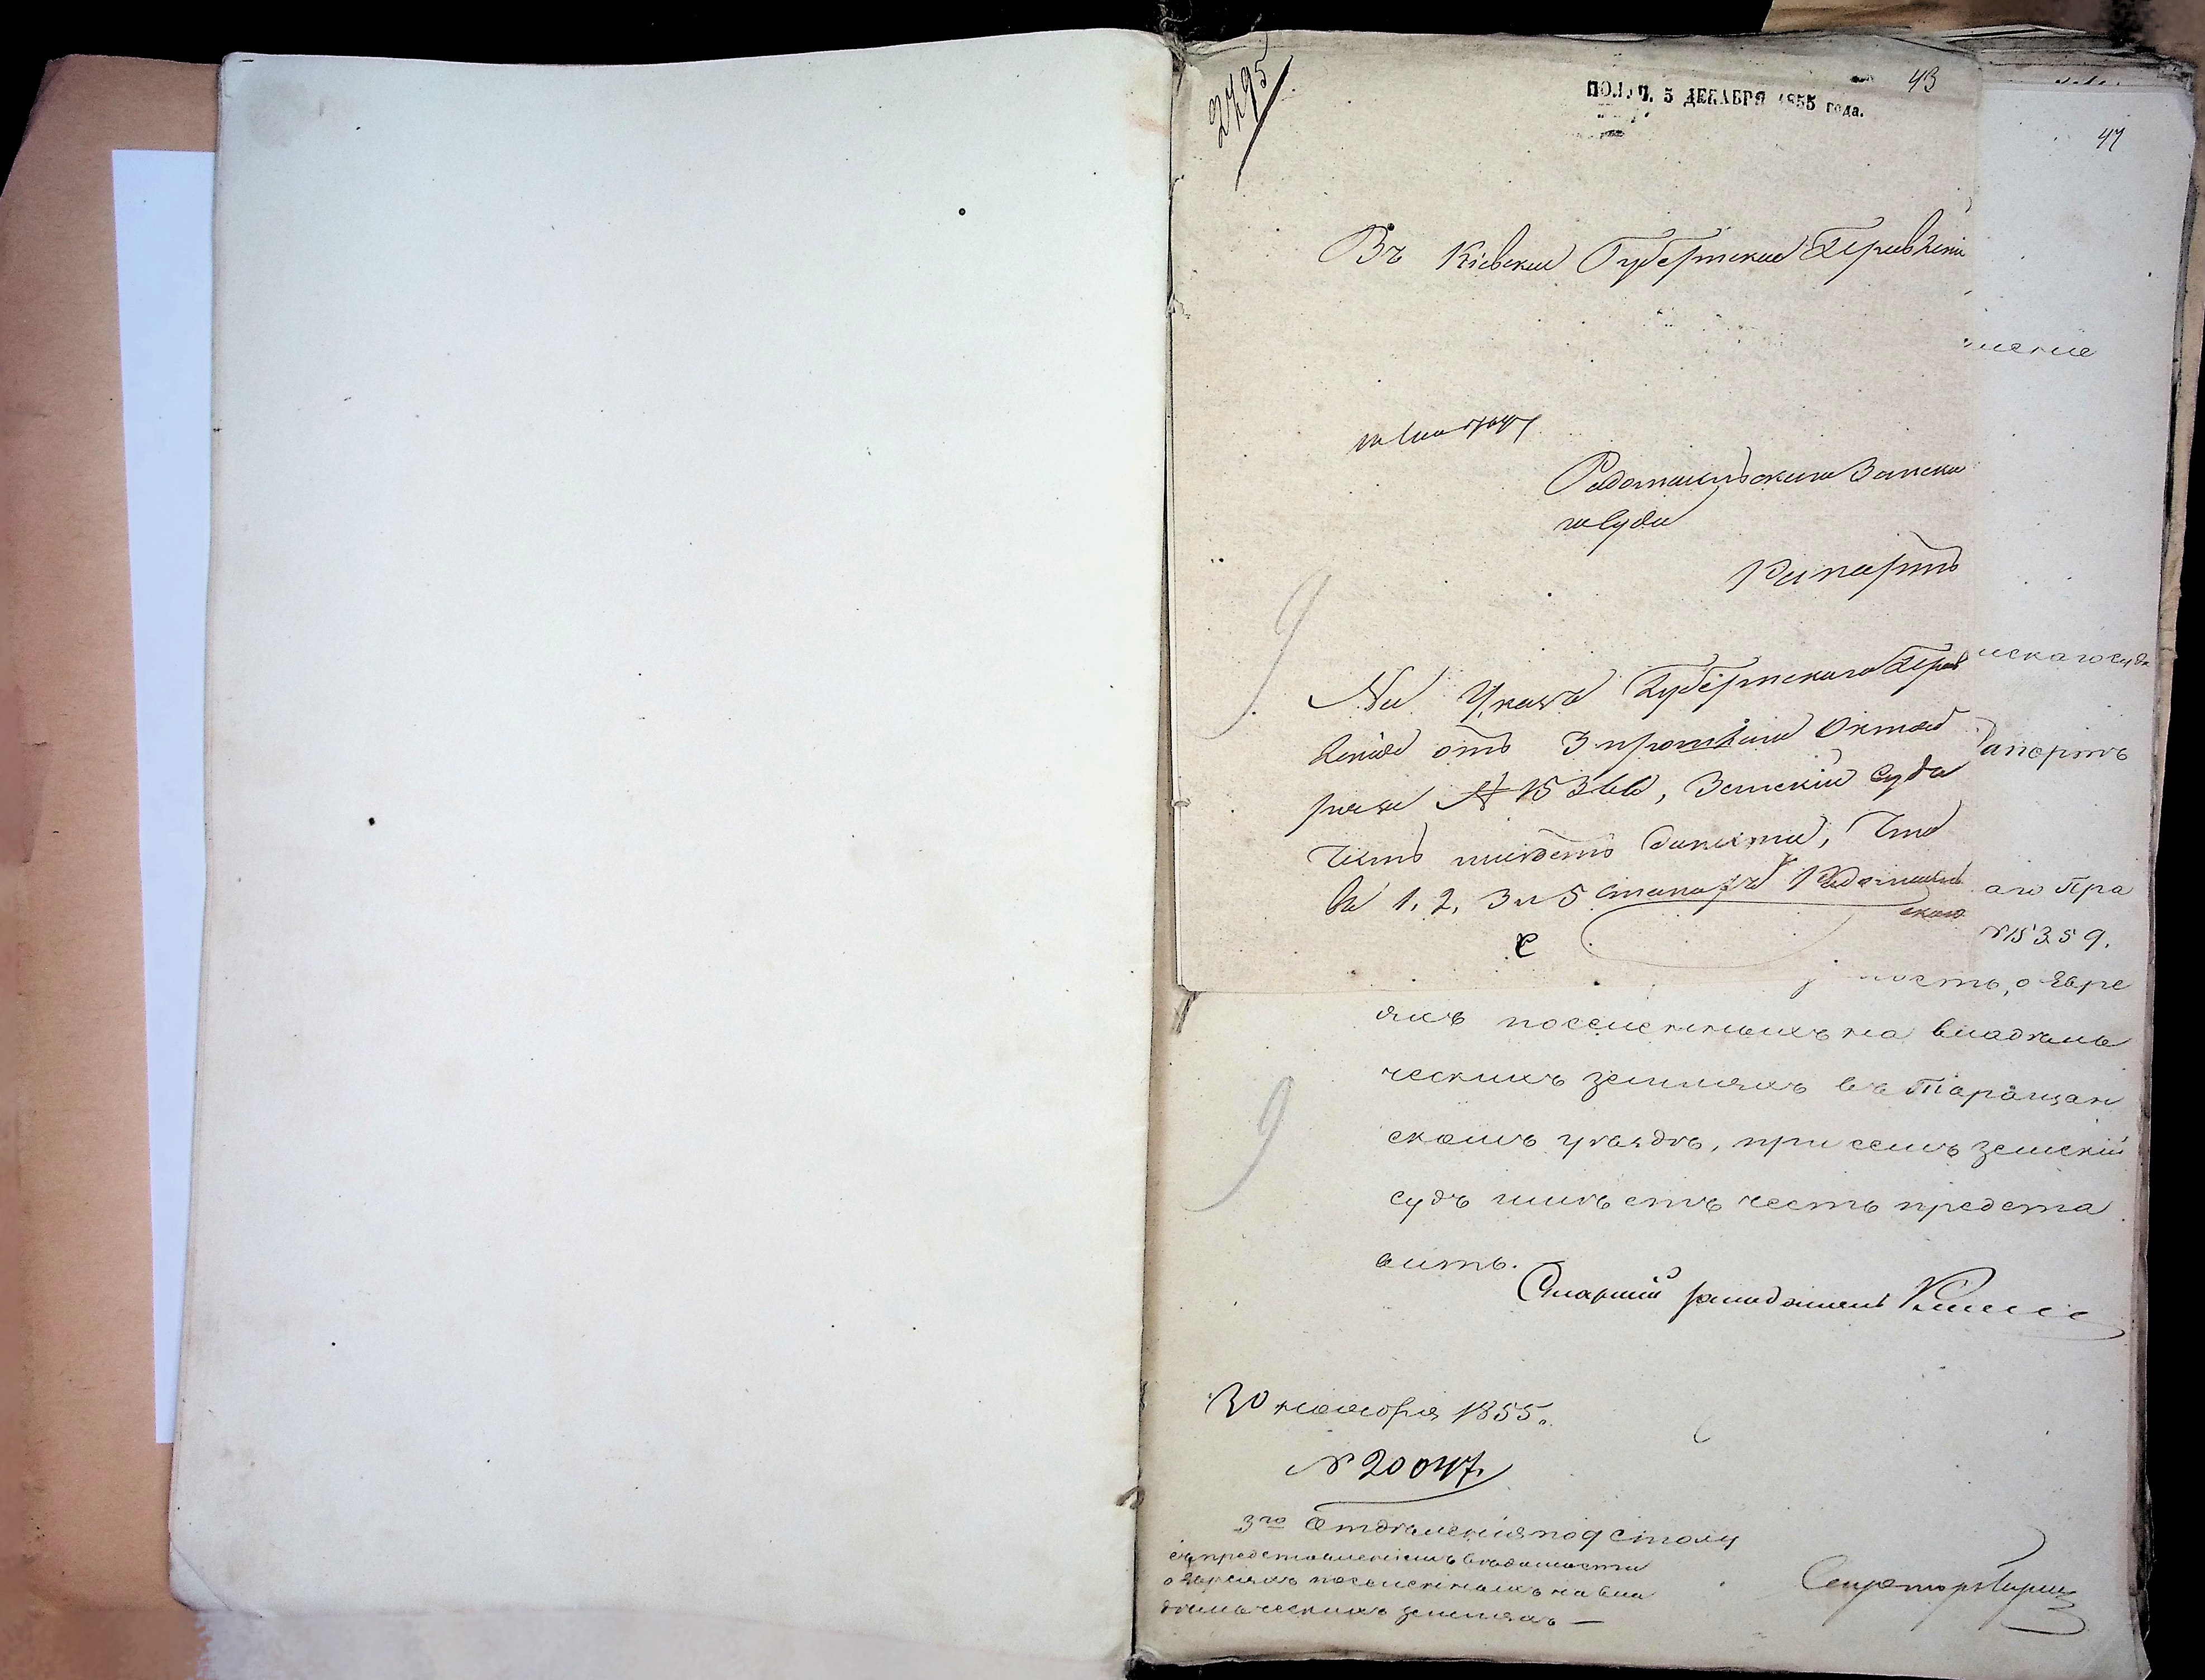 2795
ПОЛУЧ. 5 ДЕКАБРЯ 1855 года.
43
Въ Кіевское Губернское Правленіе
Радомысльскаго Земска
го Суда
Рапортъ
На Указъ Губернскаго Прав
ленія отъ 3 прошлаго Октяб
ря за № 15366, Земскій Судъ
честь имѣетъ донести, что
въ 1. 2. 3 и 5 станахъ Радомысль
скаго
47
мскаго суда
Рапортъ
аго Пра
№ 15359.
мость, о Евре
яхъ поселенныхъ на владѣль
ческихъ земляхъ въ Таращан
скомъ уѣздѣ, при семъ земскій
судъ имѣетъ честь предста
вить.
Старшій засѣдатель
30 ноября 1855.
№ 20047.
3го Отдѣленія по 9 столу
съ представленіемъ вѣдомости
о Евреяхъ поселенныхъ на вла
дѣльческихъ земляхъ —
Секретарь